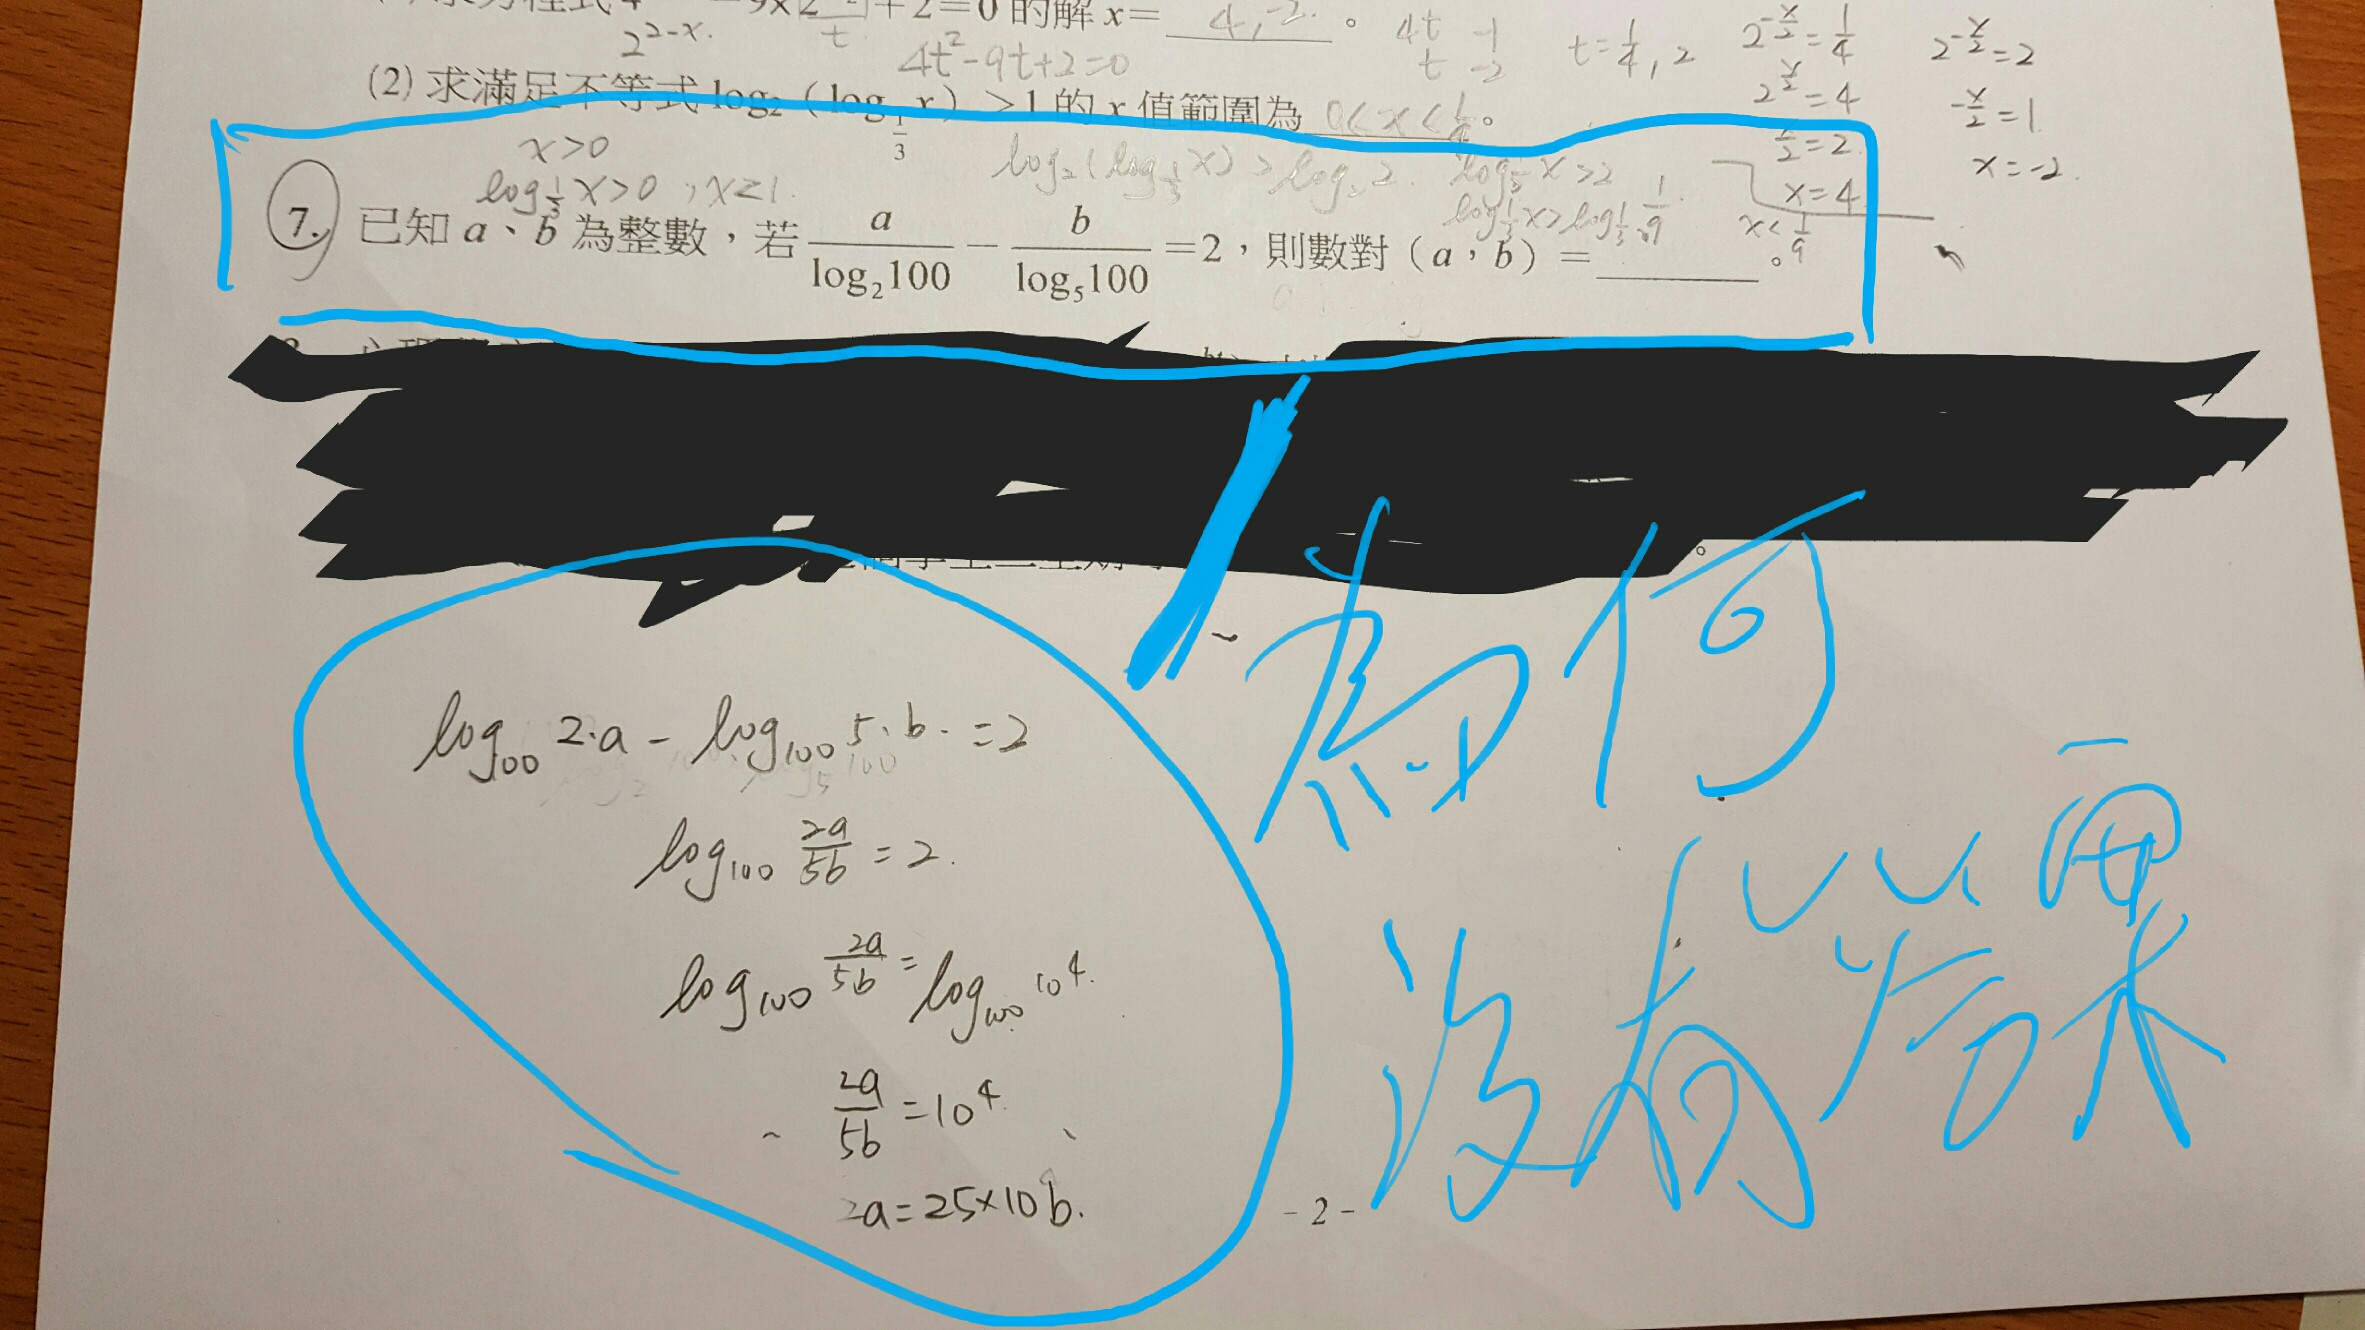 -9x2 +2=0 的解 x= 4,-2 。
2^{2-x}. t 4t²-9t+2=0
4t -1
t -2
t=1/4, 2
2^{-x/2}=1/4
2^{x/2}=4
x/2=2
x=4
2^{-x/2}=2
-x/2=1
x=-2.
(2) 求滿足不等式 log₂(log_{1/3} x)>1 的 x 值範圍為 0<x<1/9 。
x>0
log_{1/3} x>0 , x≥1.
log₂(log_{1/3} x) > log₂ 2. log_{1/3} x>2
log_{1/3} x>log_{1/3} 1/9
x<1/9
7. 已知 a、b 為整數,若 a/log₂100 - b/log₅100 =2,則數對(a,b)= 。
為何
沒有答案
log₀₀ 2·a - log₁₀₀ 5·b. =2
log₁₀₀ 2a/5b = 2.
log₁₀₀ 2a/5b = log₁₀₀ 10⁴.
2a/5b =10⁴
2a=25×10b.
- 2 -